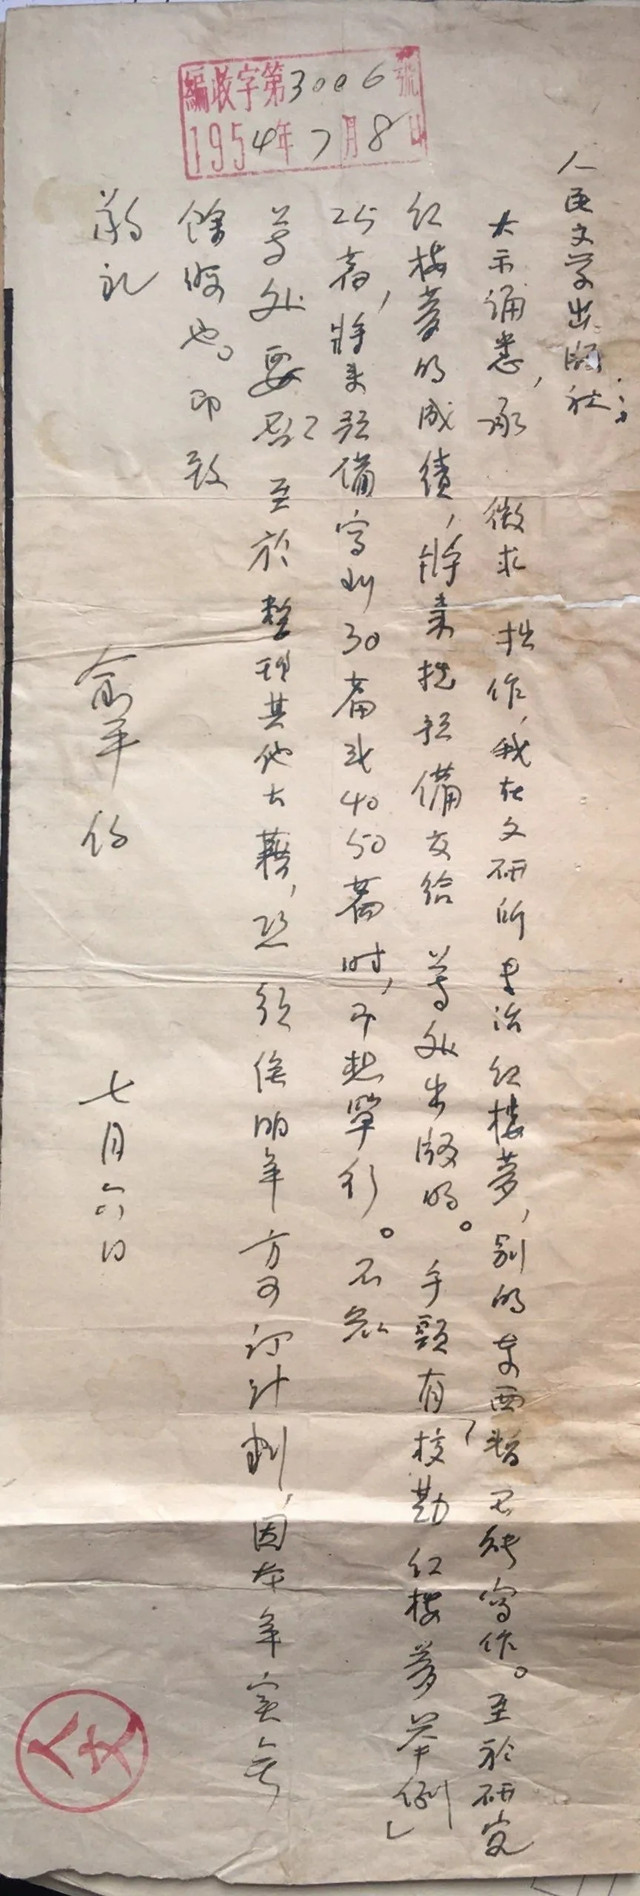 編收字第3006號
1954年7月8日
人民文學出版社：
大示誦悉，承 徵求 拙作，我在文研所專治紅樓夢，別的東西暫不能寫作。至於研究
紅樓夢的成績，將來擬預備交給 尊處出版的。手頭有「校勘紅樓夢舉例」
25篇，將來預備寫到30篇或40 50篇時，即想單行。不知
尊處要否？至於整理其他古籍，恐須俟明年方可訂計劃，因本年實無
餘暇也。即致
敬禮
俞平伯
七月六日
人文